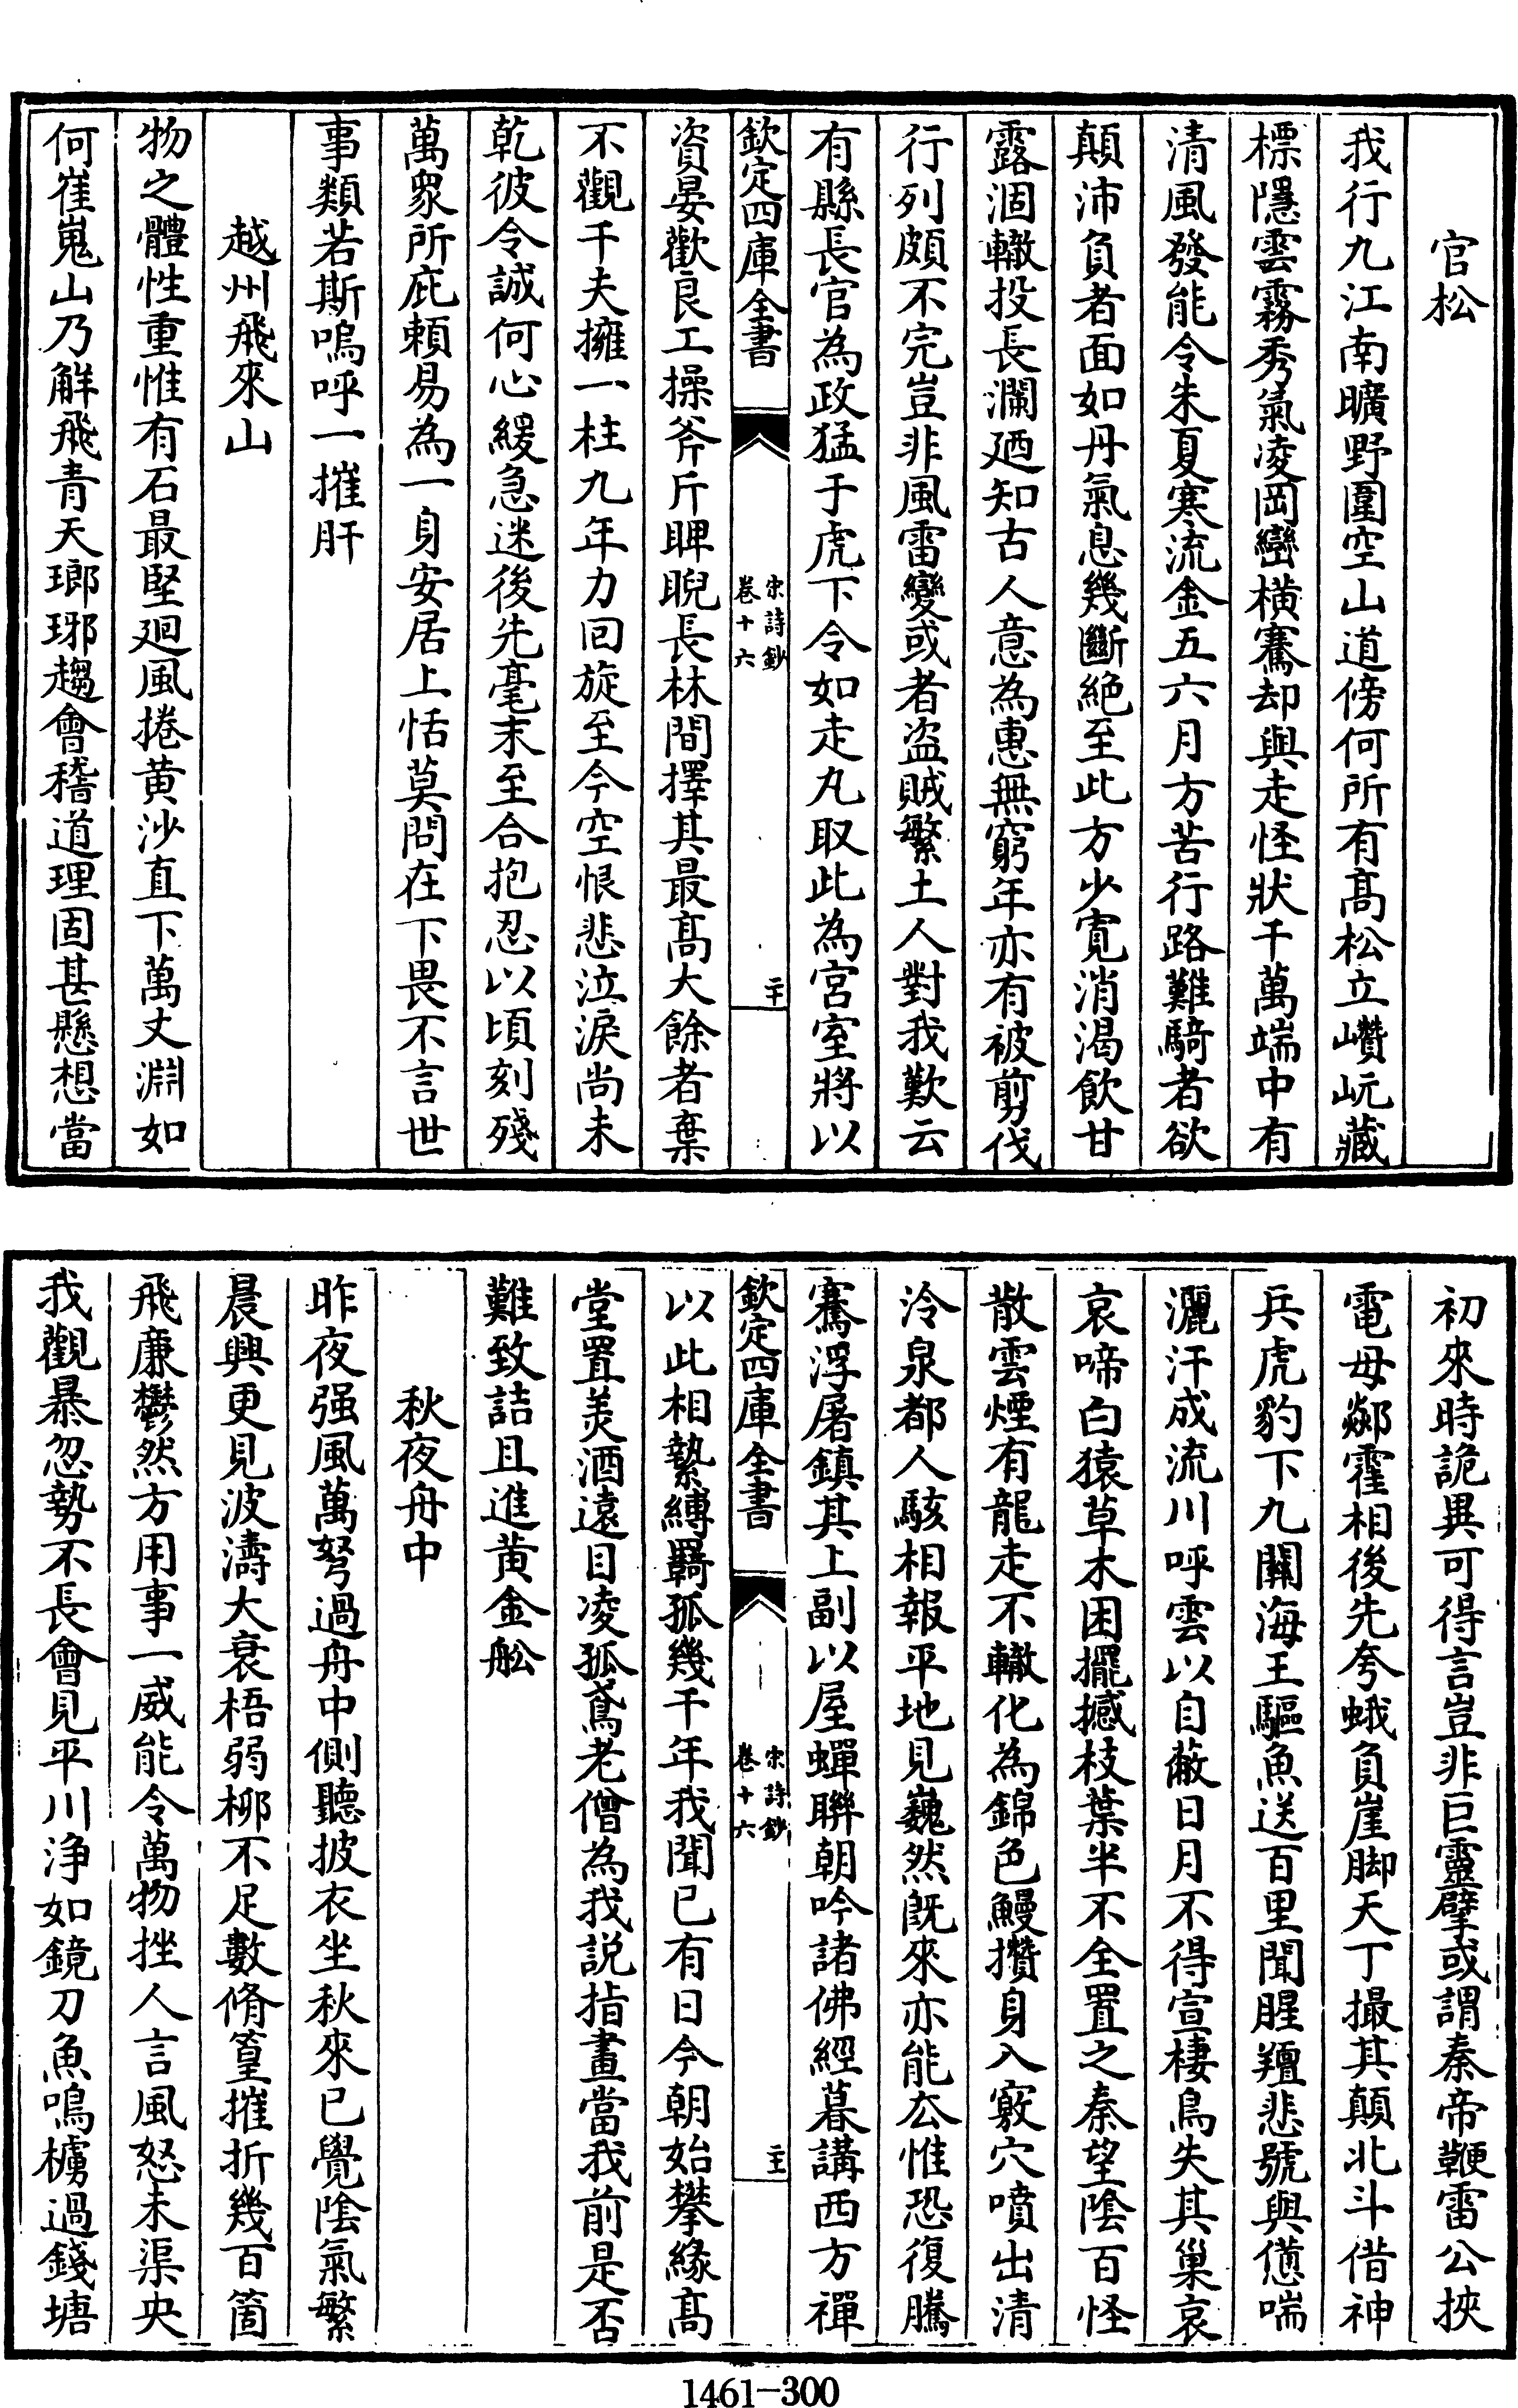 官松
我行九江南曠野圍空山道傍何所有髙松立巑岏藏
標隱雲霧秀氣凌岡巒橫騫却與走怪狀千萬端中有
清風發能令朱夏寒流金五六月方苦行路難騎者欲
顛沛負者面如丹氣息幾斷絶至此方少寛消渴飲甘
露涸轍投長瀾廼知古人意為惠無窮年亦有被剪伐
行列頗不完豈非風雷變或者盜賊繁土人對我歎云
有縣長官為政猛于虎下令如走丸取此為宮室將以
欽定四庫全書
宋詩鈔
卷十六
二十
資晏歡良工操斧斤睥睨長林間擇其最髙大餘者棄
不觀千夫擁一柱九年力回旋至今空恨悲泣淚尚未
乾彼令誠何心緩急迷後先毫末至合抱忍以頃刻殘
萬衆所庇頼易為一身安居上恬莫問在下畏不言世
事類若斯嗚呼一摧肝
越州飛來山
物之體性重惟有石最堅廻風捲黄沙直下萬丈淵如
何崔嵬山乃解飛青天瑯琊趨會稽道理固甚懸想當
初來時詭異可得言豈非巨靈擘或謂秦帝鞭雷公挾
電母鄰霍相後先夸蛾負崖脚天丁撮其顛北斗借神
兵虎豹下九闗海王驅魚送百里聞腥羶悲號與憊喘
灑汗成流川呼雲以自蔽日月不得宣棲鳥失其巢哀
哀啼白猿草木困擺撼枝葉半不全置之秦望陰百怪
散雲煙有龍走不轍化為錦色鰻攢身入竅穴噴出清
泠泉都人駭相報平地見巍然既來亦能厺惟恐復騰
騫浮屠鎮其上副以屋蟬聨朝吟諸佛經暮講西方禪
欽定四庫全書
宋詩鈔
卷十六
二十一
以此相縶縛羈孤幾千年我聞已有日今朝始攀緣髙
堂置羙酒遠目凌孤鳶老僧為我説指畫當我前是否
難致詰且進黄金舩
秋夜舟中
昨夜强風萬弩過舟中側聽披衣坐秋來已覺陰氣繁
晨興更見波濤大衰梧弱栁不足數脩篁摧折幾百箇
飛廉鬱然方用事一威能令萬物挫人言風怒未渠央
我觀暴忽勢不長會見平川浄如鏡刀魚鳴櫓過錢塘
1461-300